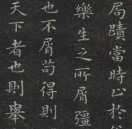 局蹟當時止於
樂生之所屑彊
也不屑苟得則
天下者也則舉